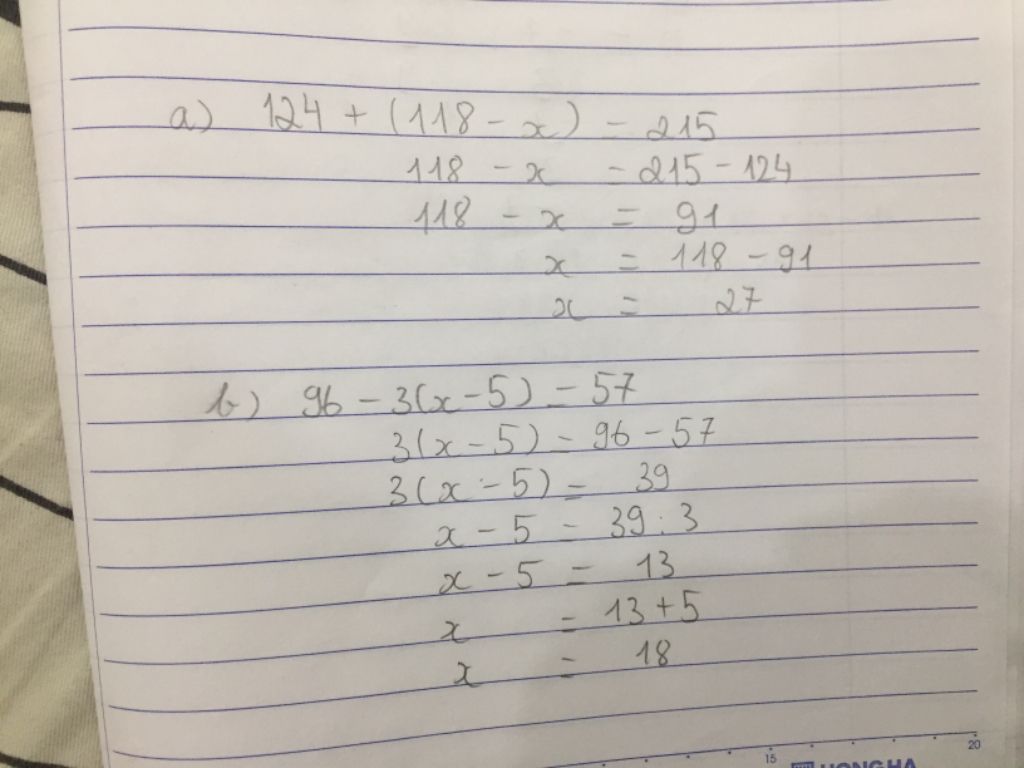 a) 124 + (118 - x) = 215
118 - x = 215 - 124
118 - x = 91
x = 118 - 91
x = 27
b) 96 - 3(x - 5) = 57
3(x - 5) = 96 - 57
3(x - 5) = 39
x - 5 = 39 : 3
x - 5 = 13
x = 13 + 5
x = 18
15 20
HONG HA